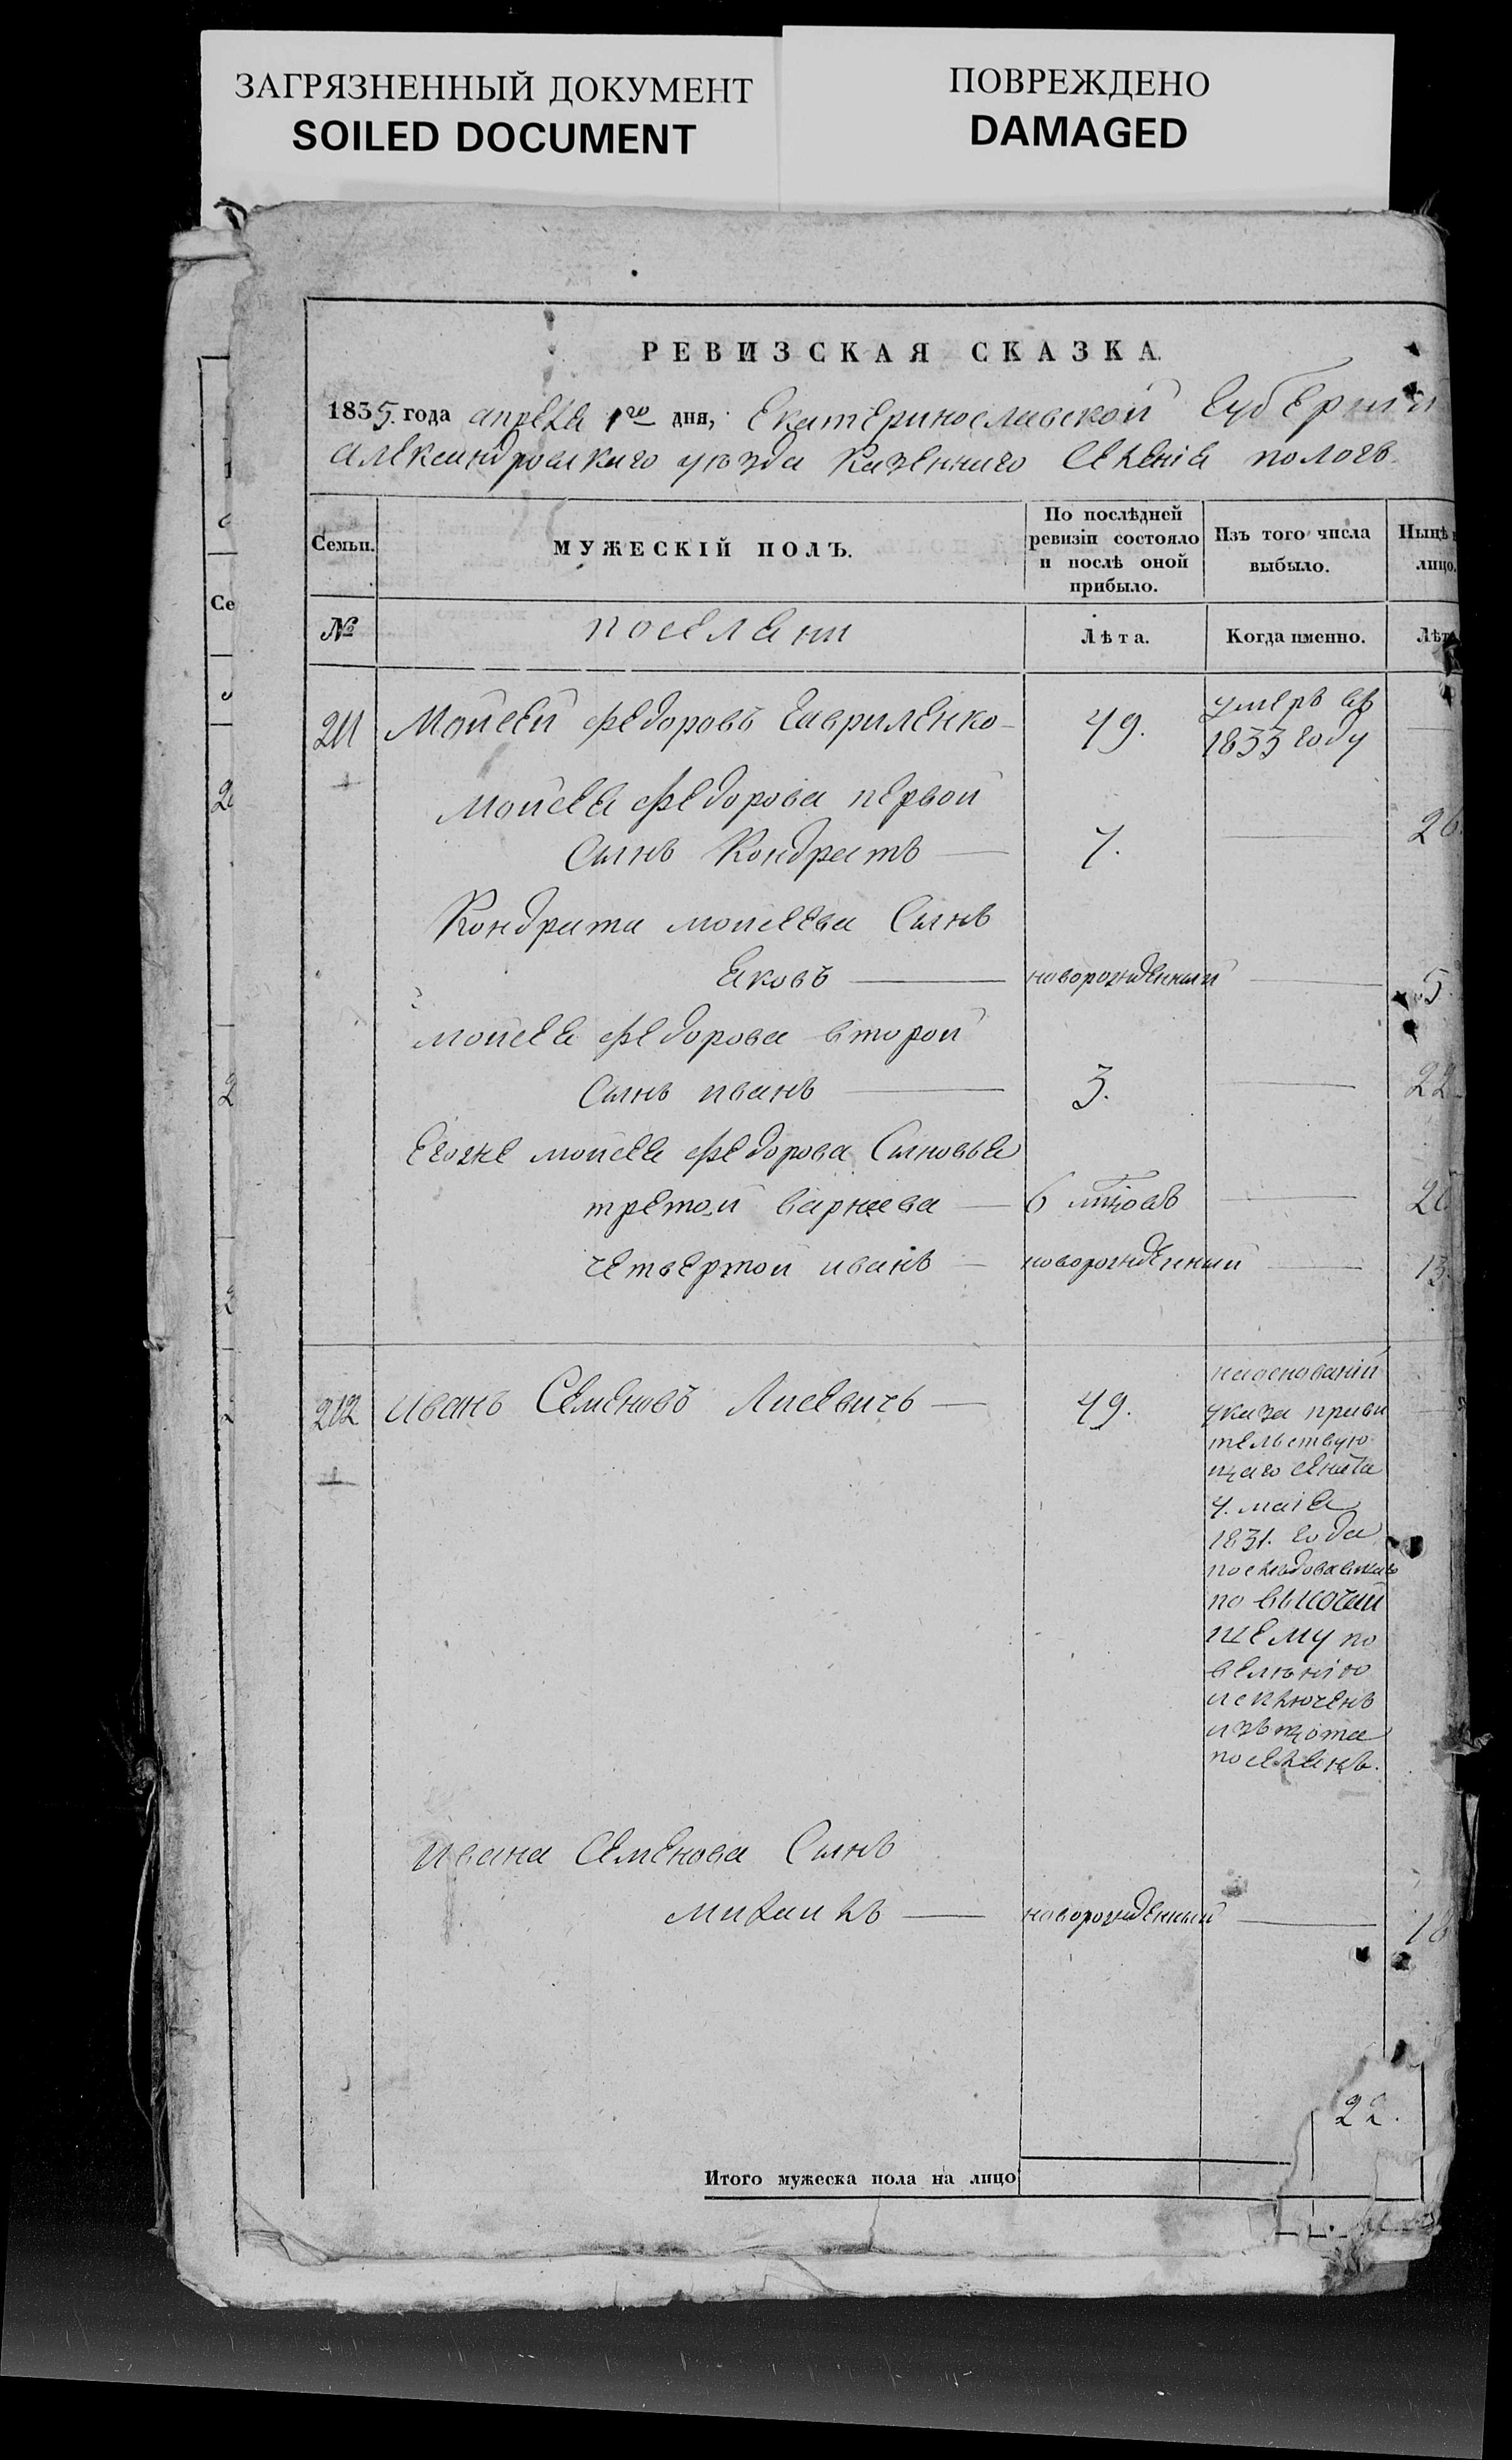 ЗАГРЯЗНЕННЫЙ ДОКУМЕНТ
SOILED DOCUMENT
ПОВРЕЖДЕНО
DAMAGED
РЕВИЗСКАЯ СКАЗКА.
1835. года апреля 1го дня, Екатеринославской Губернии
Александровскаго уезда Казеннаго Селенія пологъ
Семьи.
МУЖЕСКІЙ ПОЛЪ.
По послѣдней
ревизіи состояло
и послѣ оной
прибыло.
Изъ того числа
выбыло.
Нынѣ
лицо.
№
поселяни
Лѣта.
Когда именно.
Лѣт
211 Мойсей Федоровъ Гавриленко 49. умеръ въ
1833 году
Мойсея Федорова первой
Сынъ Кондратъ 7. 26
Кондрата мойсеева Сынъ
Яковъ новорожденный 5
Мойсея Федорова второй
Сынъ иванъ 3. 22
Егоже мойсея Федорова Сыновья
третой варнава 6 20
четвертой иванъ новорожденный 13
212 иванъ Семеновъ Лисевичь 49.
наоснованіи
указа прави
тельствую
щаго сената
7. маія
1831. года
последовавшаго
по высочай
шему по
веленію
исключенъ
изъ щота
поселянъ.
ивана Семенова Сынъ
михаилъ новорожденный 18
22.
Итого мужеска пола на лицо